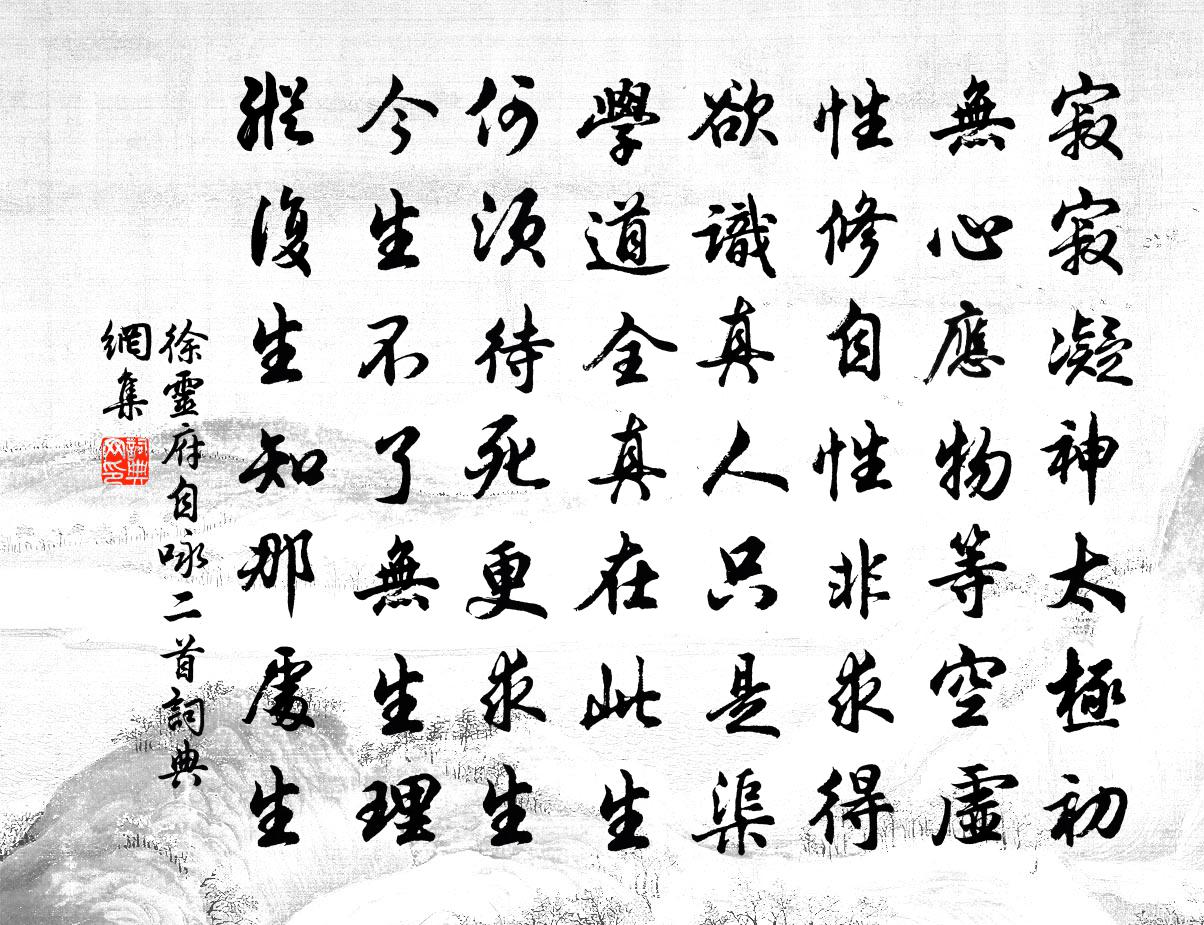 寂寂凝神太極初
無心應物等空虛
性修自性非求得
欲識真人只是渠
學道全真在此生
何須待死更求生
今生不了無生理
縱復生知那處生
徐靈府自咏二首詞典
網集
詞典網印